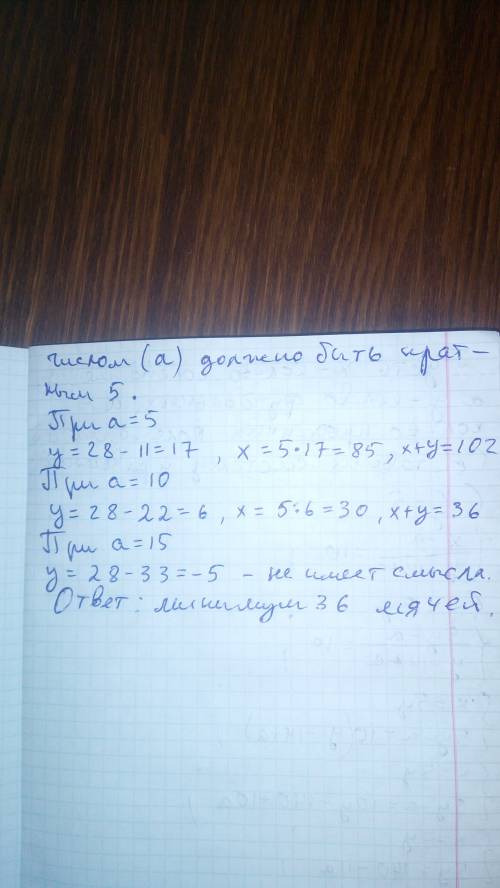 числом (а) должно быть крат-
ным 5.
При а=5
у=28-11=17, х=5·17=85, х+у=102
При а=10
у=28-22=6, х=5·6=30, х+у=36
При а=15
у=28-33=-5 - не имеет смысла.
Ответ: минимум 36 мячей.